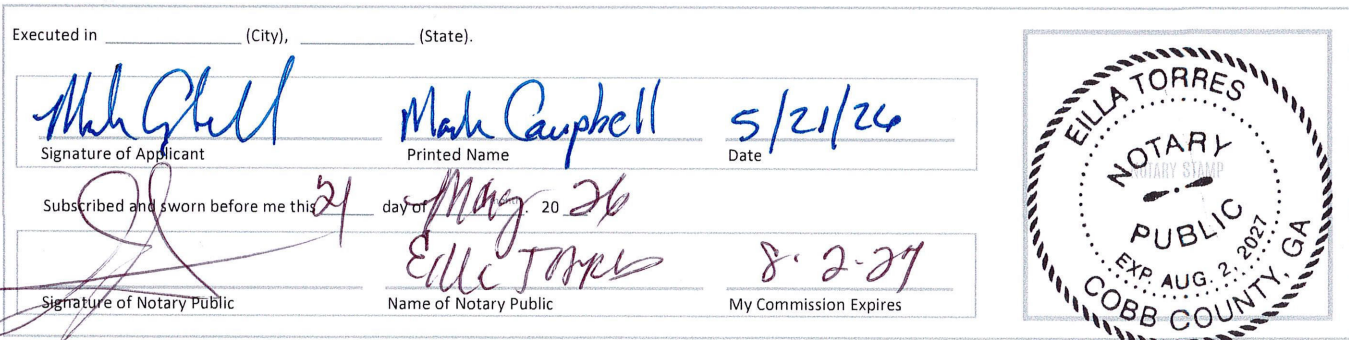 Executed in ____________ (City), ____________ (State).
Mark Campbell 5/21/26
Signature of Applicant Printed Name Date
Subscribed and sworn before me this 21 day of May 20 26
Eilla Torres 8-2-27
Signature of Notary Public Name of Notary Public My Commission Expires
EILLA TORRES
NOTARY
NOTARY STAMP
PUBLIC
EXP. AUG. 2, 2027
COBB COUNTY, GA